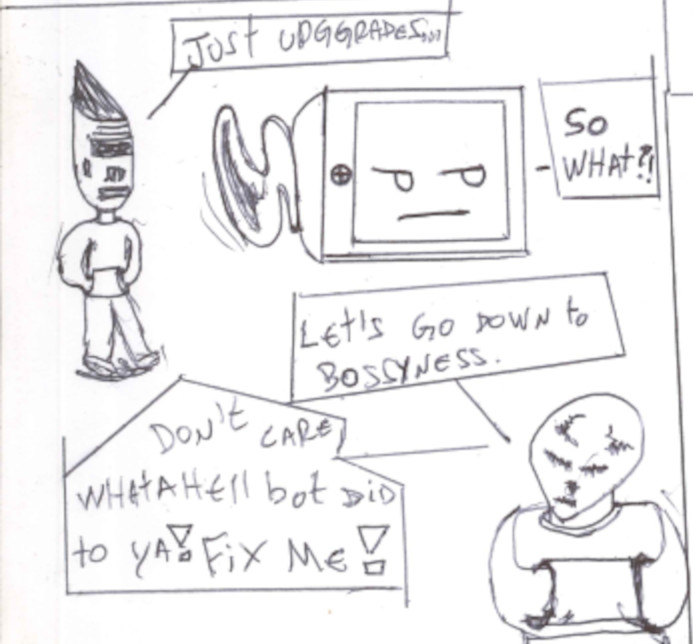 JUST UPGGRADES...
SO
WHAT?!
LET'S GO DOWN to
BOSSYNESS.
DON'T CARE
WHATAHEll bot DID
to YA! FiX ME!